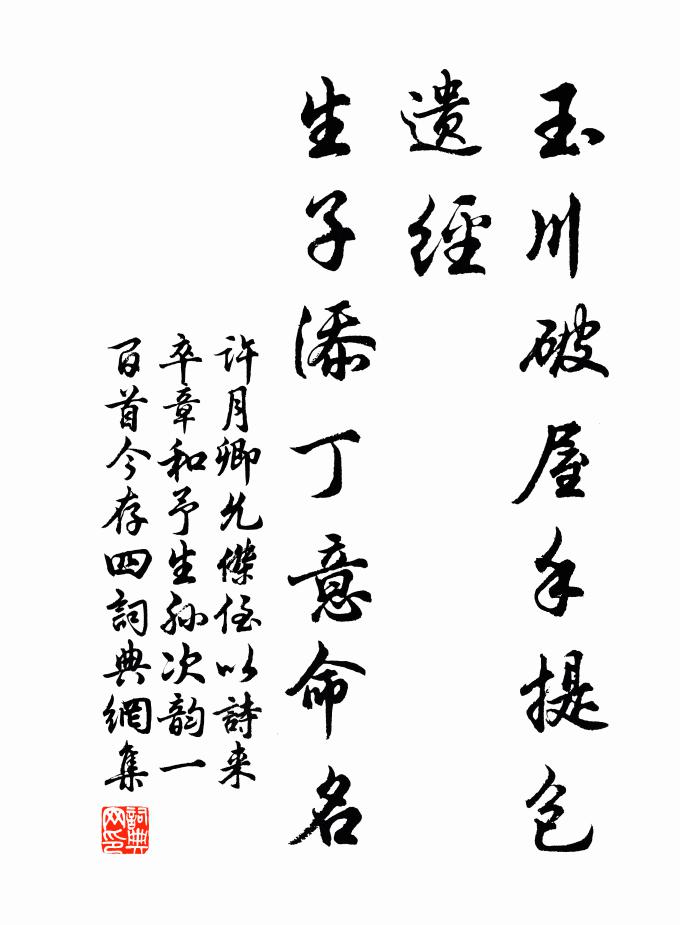 玉川破屋手提包
遺經
生子添丁意命名
許月卿允傑侄以詩来
卒章和予生孫次韵一
百首今存四詞典網集
詞典网印